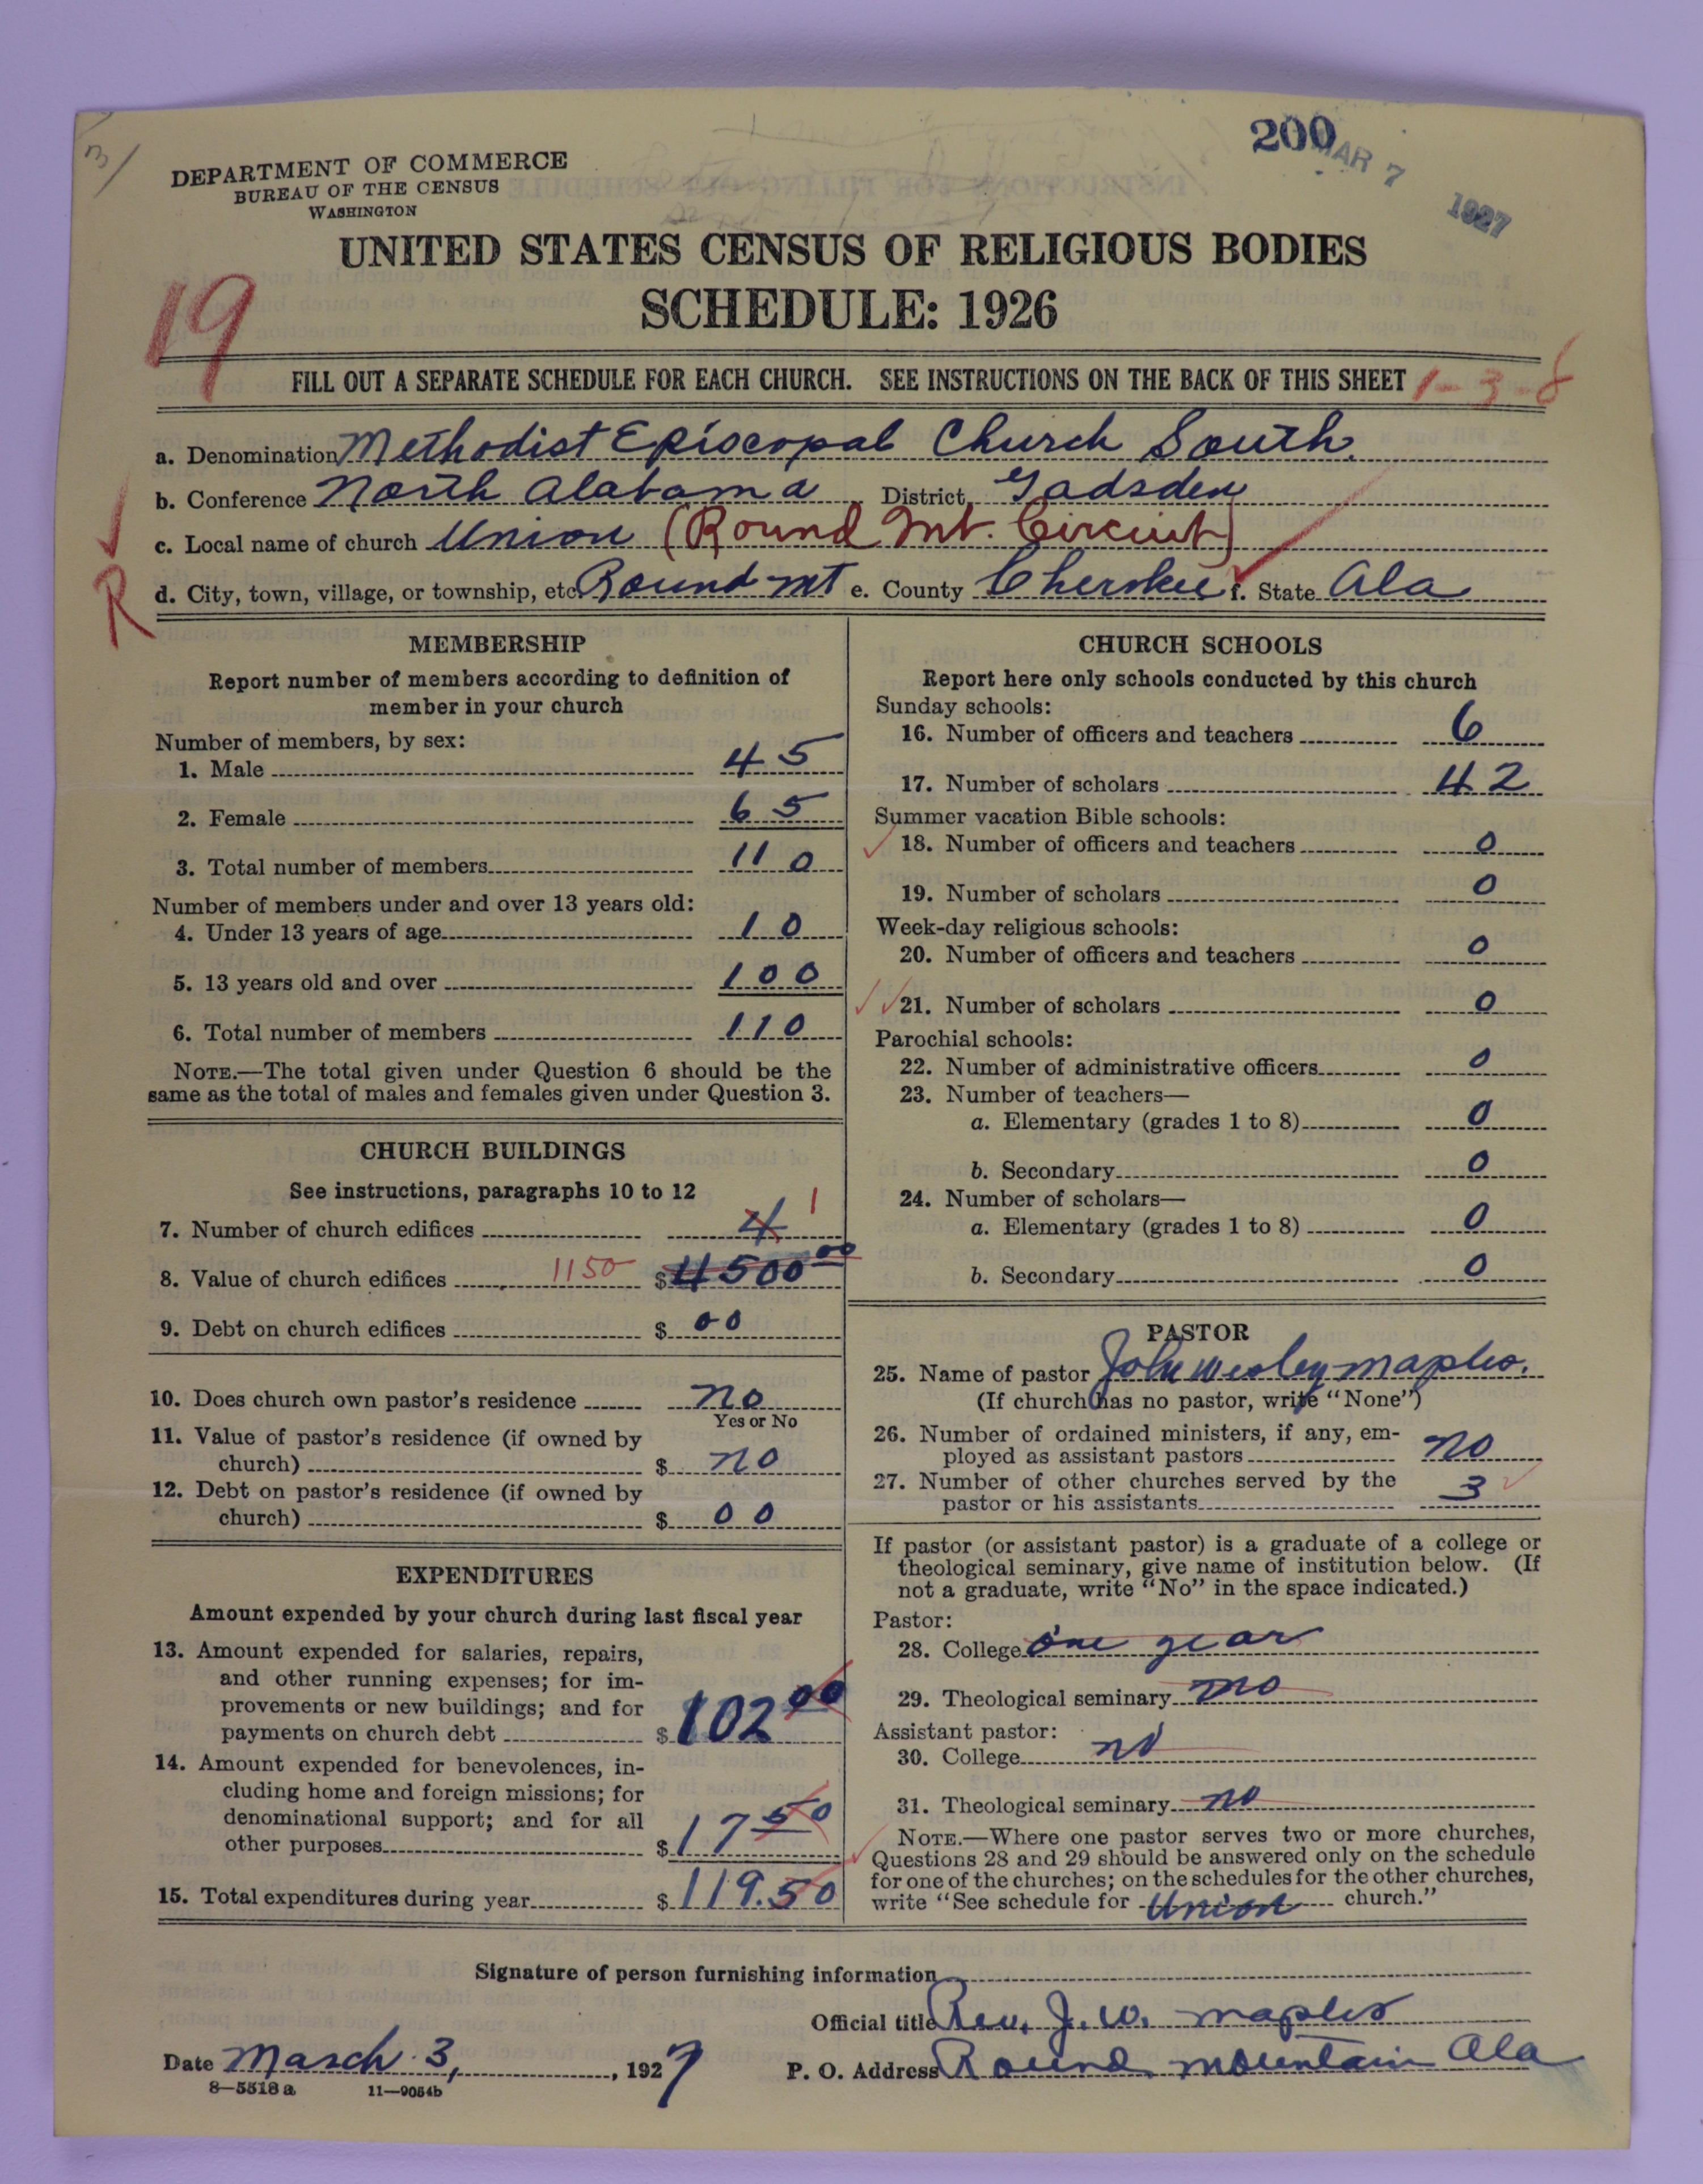 3/
200
MAR 7 1927
DEPARTMENT OF COMMERCE
BUREAU OF THE CENSUS
WASHINGTON
UNITED STATES CENSUS OF RELIGIOUS BODIES
SCHEDULE: 1926
19
FILL OUT A SEPARATE SCHEDULE FOR EACH CHURCH. SEE INSTRUCTIONS ON THE BACK OF THIS SHEET
1-3-8
a. Denomination Methodist Episcopal Church South.
b. Conference North Alabama District Gadsden
c. Local name of church Union (Round Mt. Circuit)
R
d. City, town, village, or township, etc. Round Mt e. County Cherokee f. State Ala
MEMBERSHIP
Report number of members according to definition of
member in your church
Number of members, by sex:
1. Male 45
2. Female 65
3. Total number of members 110
Number of members under and over 13 years old:
4. Under 13 years of age 10
5. 13 years old and over 100
6. Total number of members 110
NOTE.—The total given under Question 6 should be the
same as the total of males and females given under Question 3.
CHURCH BUILDINGS
See instructions, paragraphs 10 to 12
7. Number of church edifices 4 1
8. Value of church edifices 1150 $4500 00
9. Debt on church edifices $ 00
10. Does church own pastor's residence no
Yes or No
11. Value of pastor's residence (if owned by
church) $ no
12. Debt on pastor's residence (if owned by
church) $ 00
EXPENDITURES
Amount expended by your church during last fiscal year
13. Amount expended for salaries, repairs,
and other running expenses; for im-
provements or new buildings; and for
payments on church debt $ 102 00
14. Amount expended for benevolences, in-
cluding home and foreign missions; for
denominational support; and for all
other purposes $ 17 50
15. Total expenditures during year $ 119.50
CHURCH SCHOOLS
Report here only schools conducted by this church
Sunday schools:
16. Number of officers and teachers 6
17. Number of scholars 42
Summer vacation Bible schools:
18. Number of officers and teachers 0
19. Number of scholars 0
Week-day religious schools:
20. Number of officers and teachers 0
21. Number of scholars 0
Parochial schools:
22. Number of administrative officers 0
23. Number of teachers—
a. Elementary (grades 1 to 8) 0
b. Secondary 0
24. Number of scholars—
a. Elementary (grades 1 to 8) 0
b. Secondary 0
PASTOR
25. Name of pastor John Wesley Maples.
(If church has no pastor, write "None")
26. Number of ordained ministers, if any, em-
ployed as assistant pastors no
27. Number of other churches served by the
pastor or his assistants 3
If pastor (or assistant pastor) is a graduate of a college or
theological seminary, give name of institution below. (If
not a graduate, write "No" in the space indicated.)
Pastor:
28. College one year
29. Theological seminary no
Assistant pastor:
30. College no
31. Theological seminary no
NOTE.—Where one pastor serves two or more churches,
Questions 28 and 29 should be answered only on the schedule
for one of the churches; on the schedules for the other churches,
write "See schedule for Union church."
Signature of person furnishing information
Official title Rev. J. W. Maples
Date March 3, 1927 P. O. Address Round Mountain Ala
8—5318 a 11—9054b